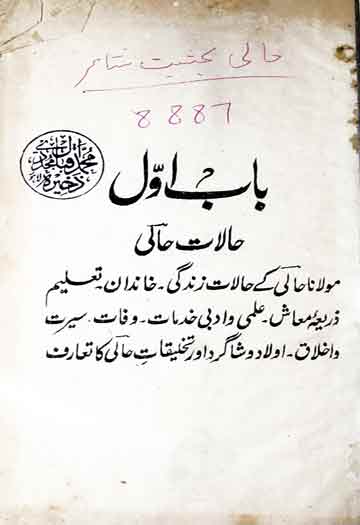 حالی بحیثیت شاعر
8887
محمد اقبال مجددی
ذخیرہ
باب اوّل
حالات حالی
مولانا حالی کے حالات زندگی۔ خاندان۔ تعلیم
ذریعۂ معاش۔ علمی و ادبی خدمات۔ وفات۔ سیرت
و اخلاق۔ اولاد و شاگرد اور تخلیقاتِ حالی کا تعارف